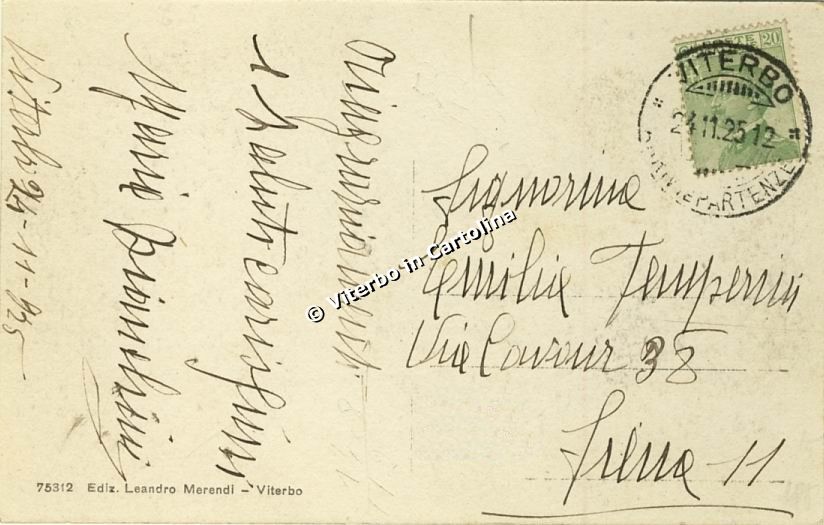 Ringraziamenti
e saluti carissimi
Maria
Viterbo 24-11-925
Signorina
Emilia Temperini
Via Cavour 38
Siena 11
POSTE 20
VITERBO
24.11.25 12
PARTENZE
© Viterbo in Cartolina
75312 Ediz. Leandro Merendi – Viterbo